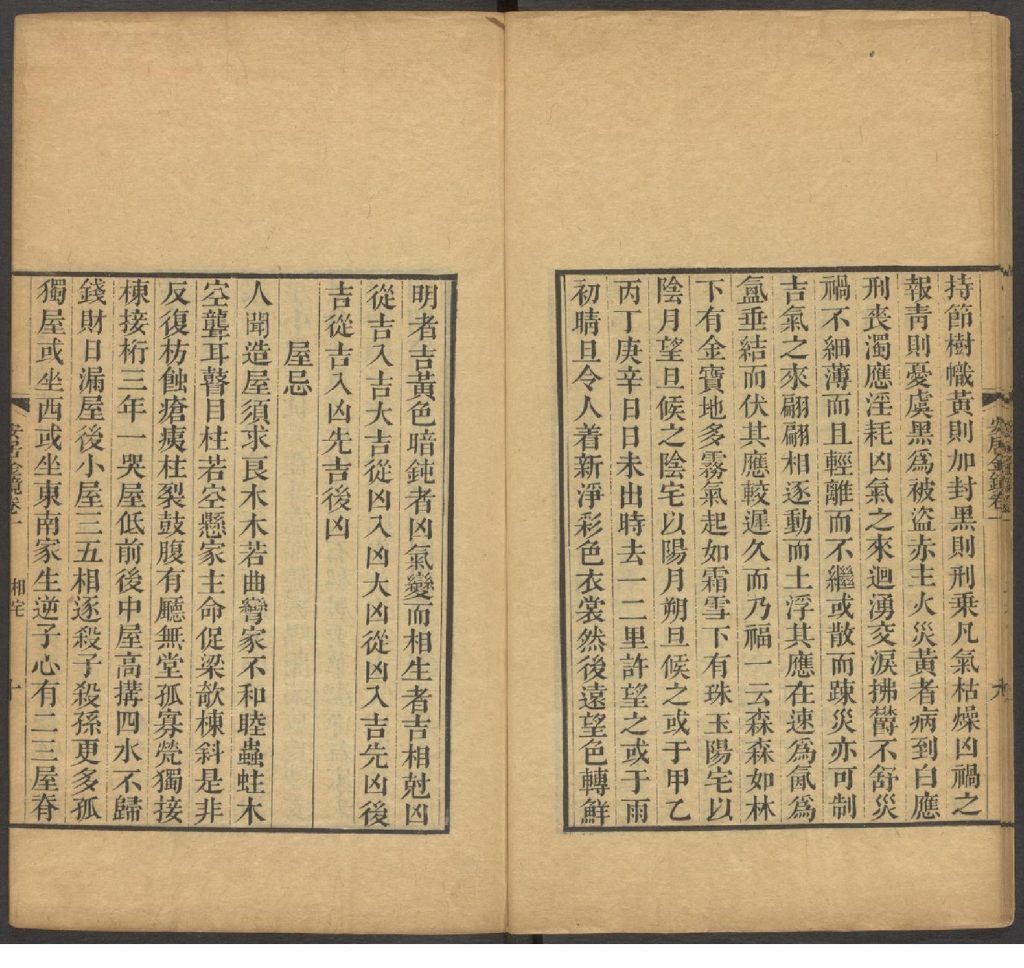 持節樹幟黃則加封黑則刑乘凡氣枯燥凶禍之
報靑則憂虞黑爲被盜赤主火災黃者病到白應
刑喪濁應淫耗凶氣之來迴湧交淚拂欝不舒災
禍不細薄而且輕離而不繼或散而踈災亦可制
吉氣之來翩翩相逐動而土浮其應在速爲氤爲
氳垂結而伏其應較遲久而乃福一云森森如林
下有金寶地多霧氣起如霜雪下有珠玉陽宅以
陰月望旦候之陰宅以陽月朔旦候之或于甲乙
丙丁庚辛日日未出時去一二里許望之或于雨
初晴旦令人着新淨彩色衣裳然後遠望色轉鮮
卷一
九
明者吉黃色暗鈍者凶氣變而相生者吉相尅凶
從吉入吉大吉從凶入凶大凶從凶入吉先凶後
吉從吉入凶先吉後凶
屋忌
人聞造屋須求良木木若曲彎家不和睦蟲蛀木
空聾耳瞽目柱若空懸家主命促梁欹棟斜是非
反復枋蝕瘡痍柱裂鼓腹有廳無堂孤寡煢獨接
棟接桁三年一哭屋低前後中屋高搆四水不歸
錢財日漏屋後小屋三五相逐殺子殺孫更多孤
獨屋或坐西或坐東南家生逆子心有二三屋脊
安居金鏡卷一
相宅
十